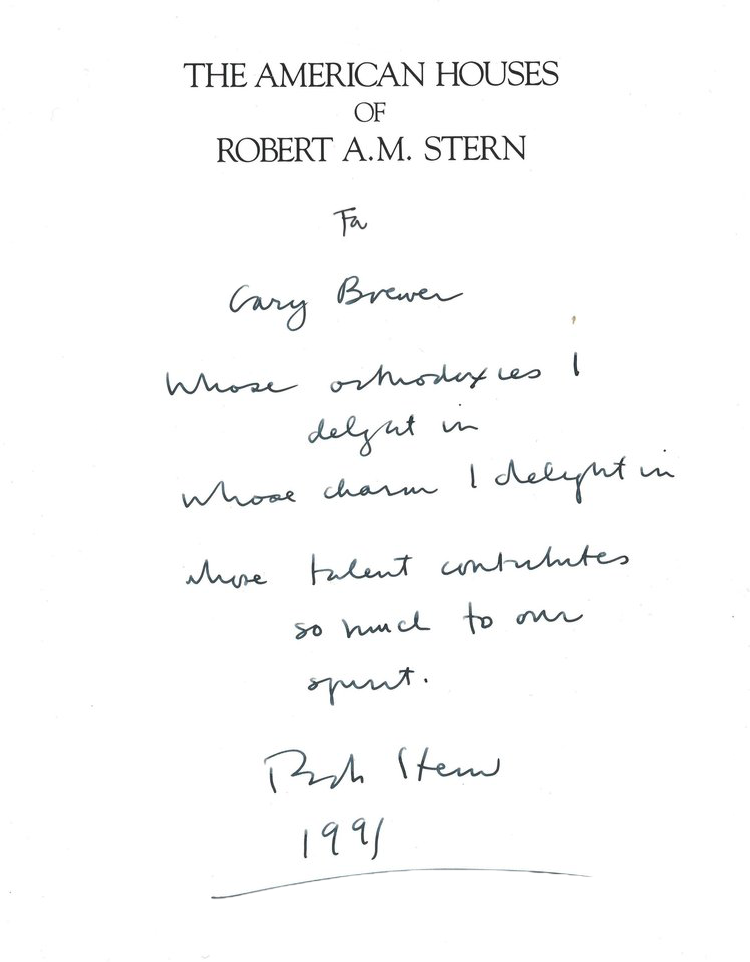 THE AMERICAN HOUSES
OF
ROBERT A.M. STERN
For
Gary Brewer
Whose orthodoxies I
delight in
whose charm I delight in
whose talent contributes
so much to our
spirit.
Bob Stern
1991